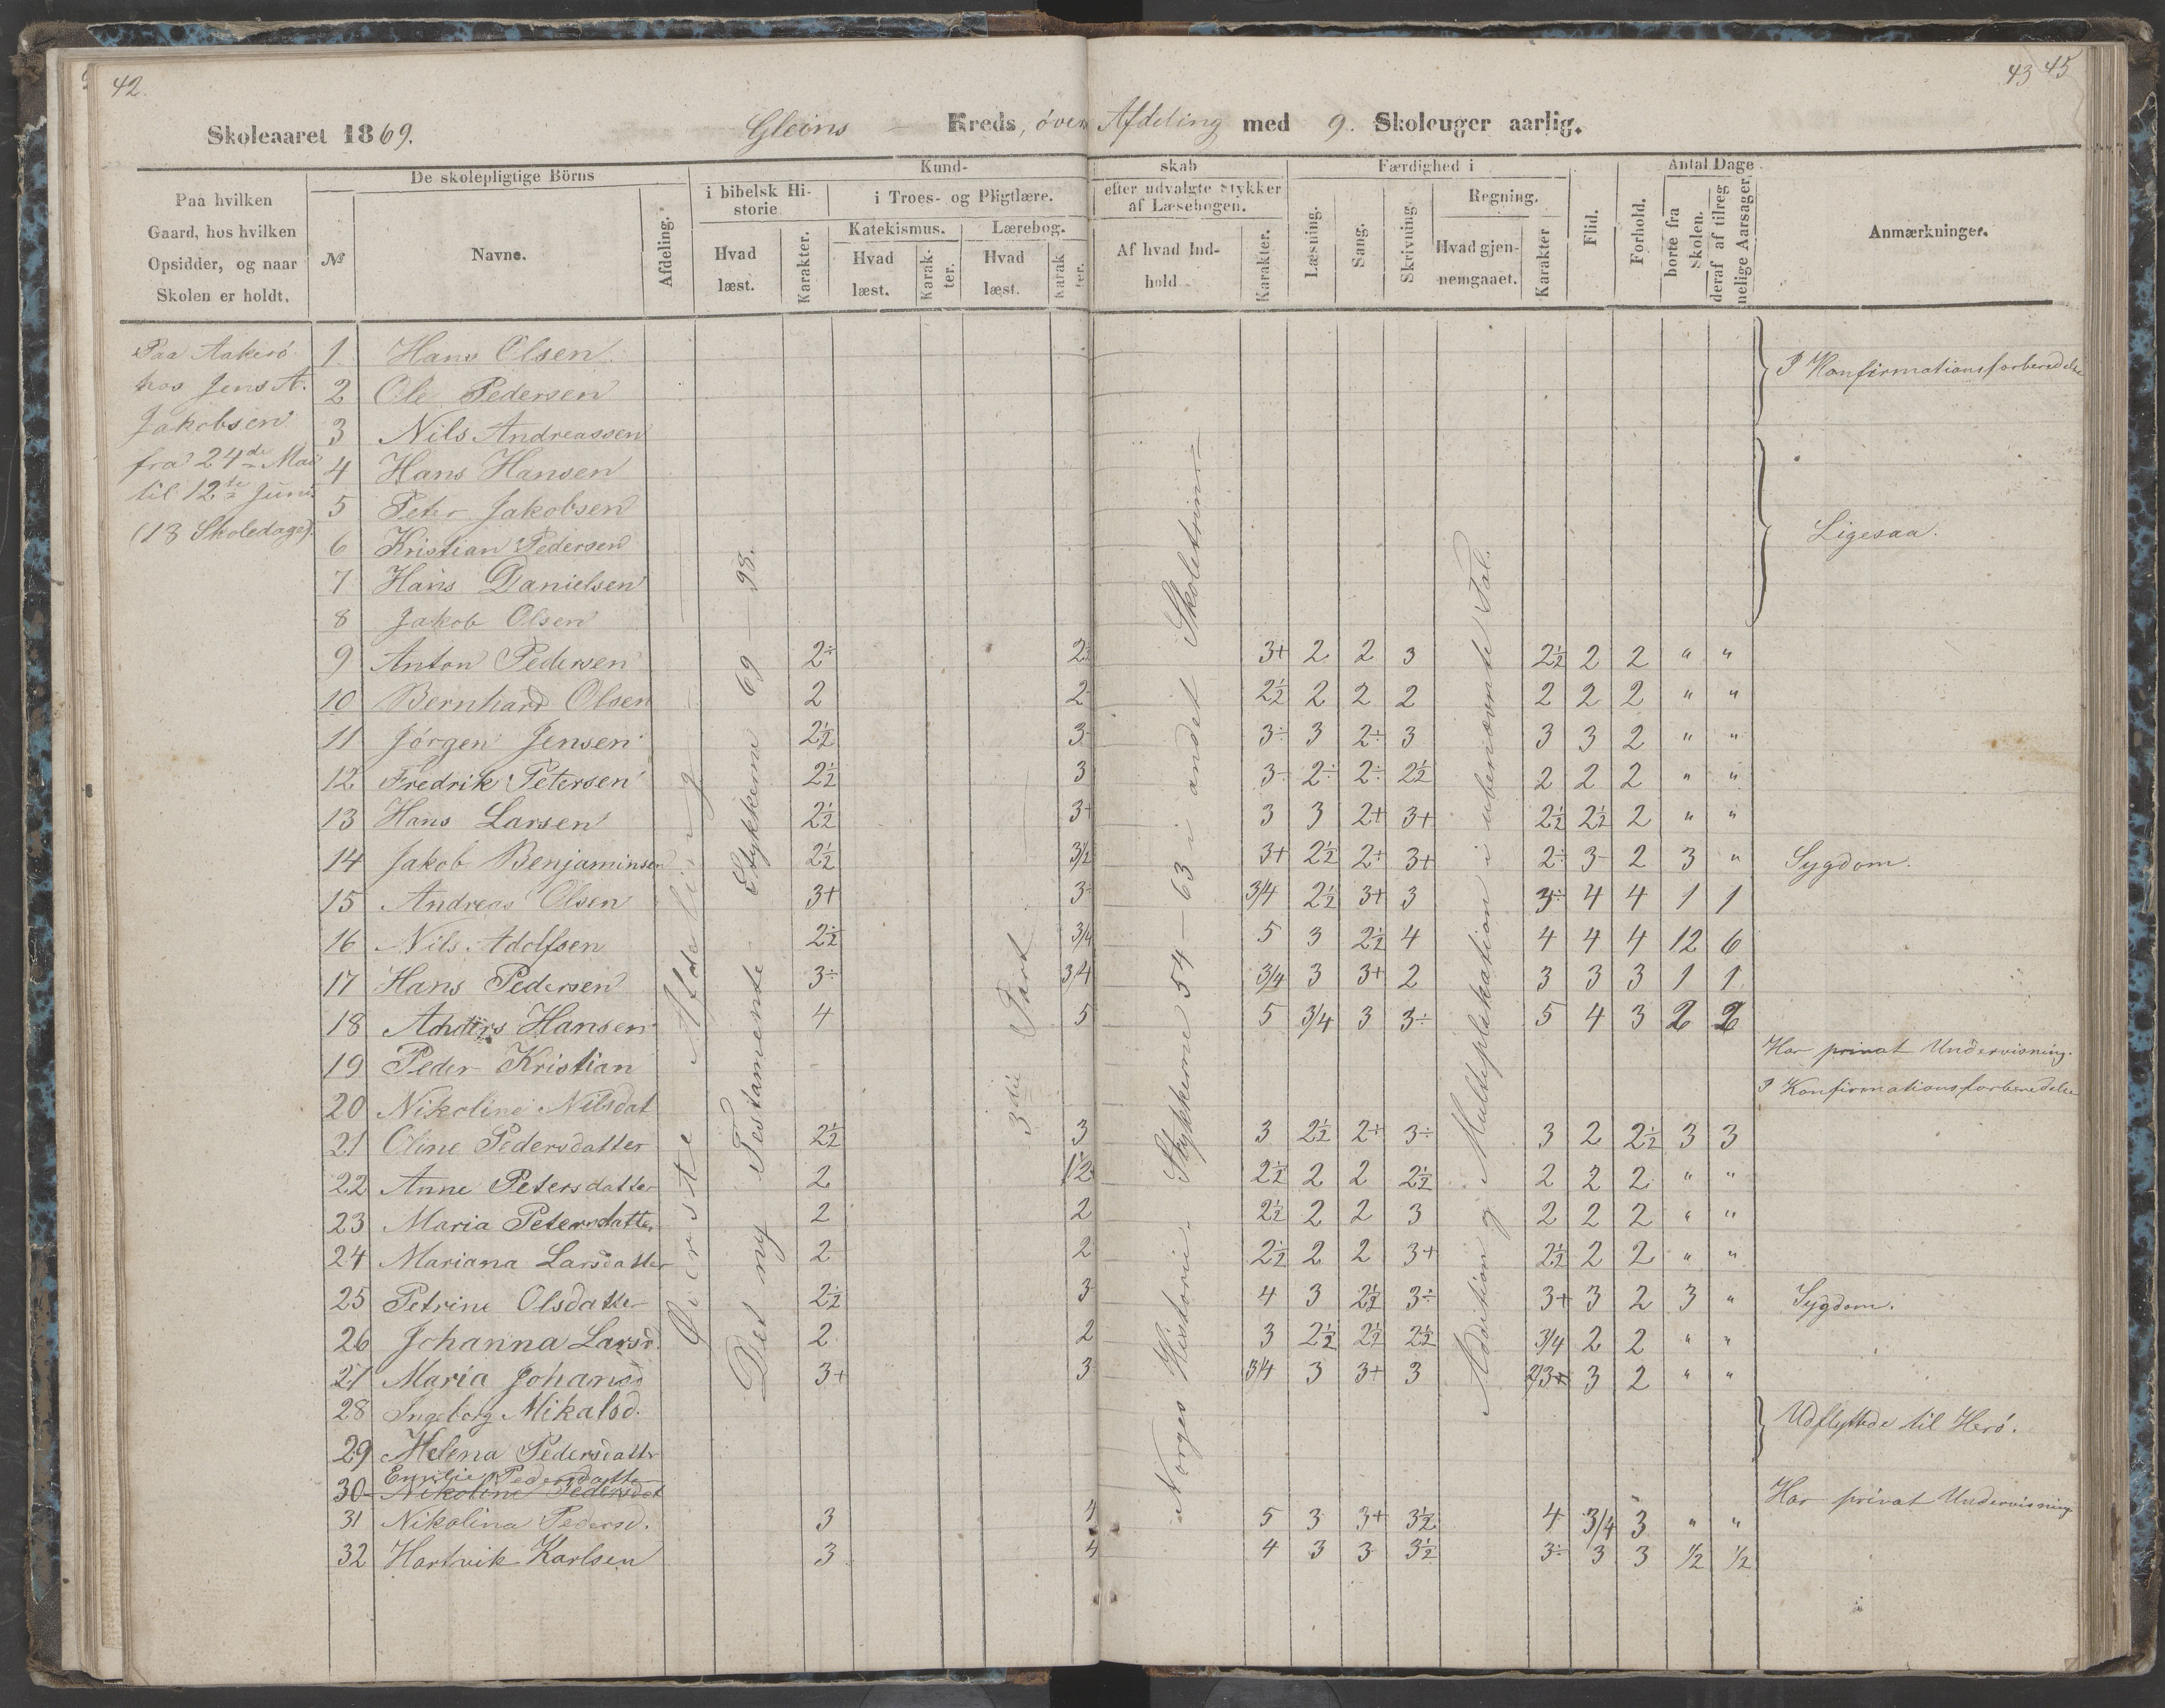 42.
43 45
Skoleaaret 1869.
Gleins — Kreds, över Afdeling med 9. Skoleuger aarlig.
Paa hvilken
Gaard, hos hvilken
Opsidder, og naar
Skolen er holdt.
De skolepligtige Börns
№
Navne.
Afdeling.
Kund-
skab
i bibelsk Hi-
storie
Hvad
læst.
Karakter.
i Troes- og Pligtlære.
Katekismus.
Hvad
læst.
Karak-
ter.
Lærebog.
Hvad
læst.
Karak
ter.
efter udvalgte Stykker
af Læsebogen.
Af hvad Ind-
hold
Karakter.
Færdighed i
Læsning.
Sang.
Skrivning.
Regning.
Hvad gjen-
nemgaaet.
Karakter
Flid.
Forhold.
Antal Dage
borte fra
Skolen.
deraf af tilreg-
nelige Aarsager.
Anmærkninger.
Paa Aakerö
hos Jens A.
Jakobsen
fra 24de Mai
til 12te Juni.
(13 Skoledage).
Överste Afdeling
Det ny Testamente - Stykkerne 69 — 98.
3die Part
Norges Historie: Stykkerne 54 — 63 i andet Skoletrin
Addition og Multiplikation i ubenævnte Tal.
1 Hans Olsen.
I Konfirmationsforberedelse
2 Ole Pedersen
3 Nils Andreassen
4 Hans Hansen
5 Peter Jakobsen
Ligesaa.
6 Kristian Pedersen
7 Hans Danielsen
8 Jakob Olsen
9 Anton Pedersen 2÷ 2½ 3+ 2 2 3 2½ 2 2 " "
10 Bernhard Olsen 2 2 2½ 2 2 2 2 2 2 " "
11 Jörgen Jensen 2½ 3 3÷ 3 2÷ 3 3 3 2 " "
12 Fredrik Petersen 2½ 3 3- 2÷ 2÷ 2½ 2 2 2 " "
13 Hans Larsen 2½ 3+ 3 3 2+ 3+ 2½ 2½ 2 " "
14 Jakob Benjaminsen 2½ 3½ 3+ 2½ 2÷ 3+ 2÷ 3 2 3 " Sygdom.
15 Andreas Olsen 3+ 3÷ 3/4 2½ 3+ 3 3÷ 4 4 1 1
16 Nils Adolfsen 2½ 3/4 5 3 2½ 4 4 4 4 12 6
17 Hans Pedersen 3÷ 3/4 3/4 3 3+ 2 3 3 3 1 1
18 Anders Hansen 4 5 5 3/4 3 3÷ 5 4 3 2 2
19 Peder Kristian Har privat Undervisning.
20 Nikoline Nilsdat I Konfirmationsforberedelse
21 Oline Pedersdatter 2½ 3 3 2½ 2+ 3÷ 3 2 2½ 3 3
22 Anne Petersdatter 2 1½ 2½ 2 2 2½ 2 2 2 " "
23 Maria Petersdatter 2 2 2½ 2 2 3 2 2 2 " "
24 Mariana Larsdatter 2 2 2½ 2 2 3+ 2½ 2 2 " "
25 Petrine Olsdatter 2½ 3 4 3 2½ 3÷ 3+ 3 2 3 " Sygdom.
26 Johanna Larsd. 2 2 3 2½ 2½ 2½ 3/4 2 2 " "
27 Maria Johansd 3+ 3 3/4 3 3+ 3 3+ 3 2 " "
28 Ingeborg Mikalsd. Udflyttede til Herö.
29 Helena Pedersdatter
Emilie Pedersdatter
30 Nikoline Pedersdat Har privat Undervisning
31 Nikolina Pedersd. 3 4 5 3 3+ 3½ 4 3/4 3 " "
32 Hartvik Karlsen 3 4 4 3 3 3½ 3÷ 3 3 1/2 1/2